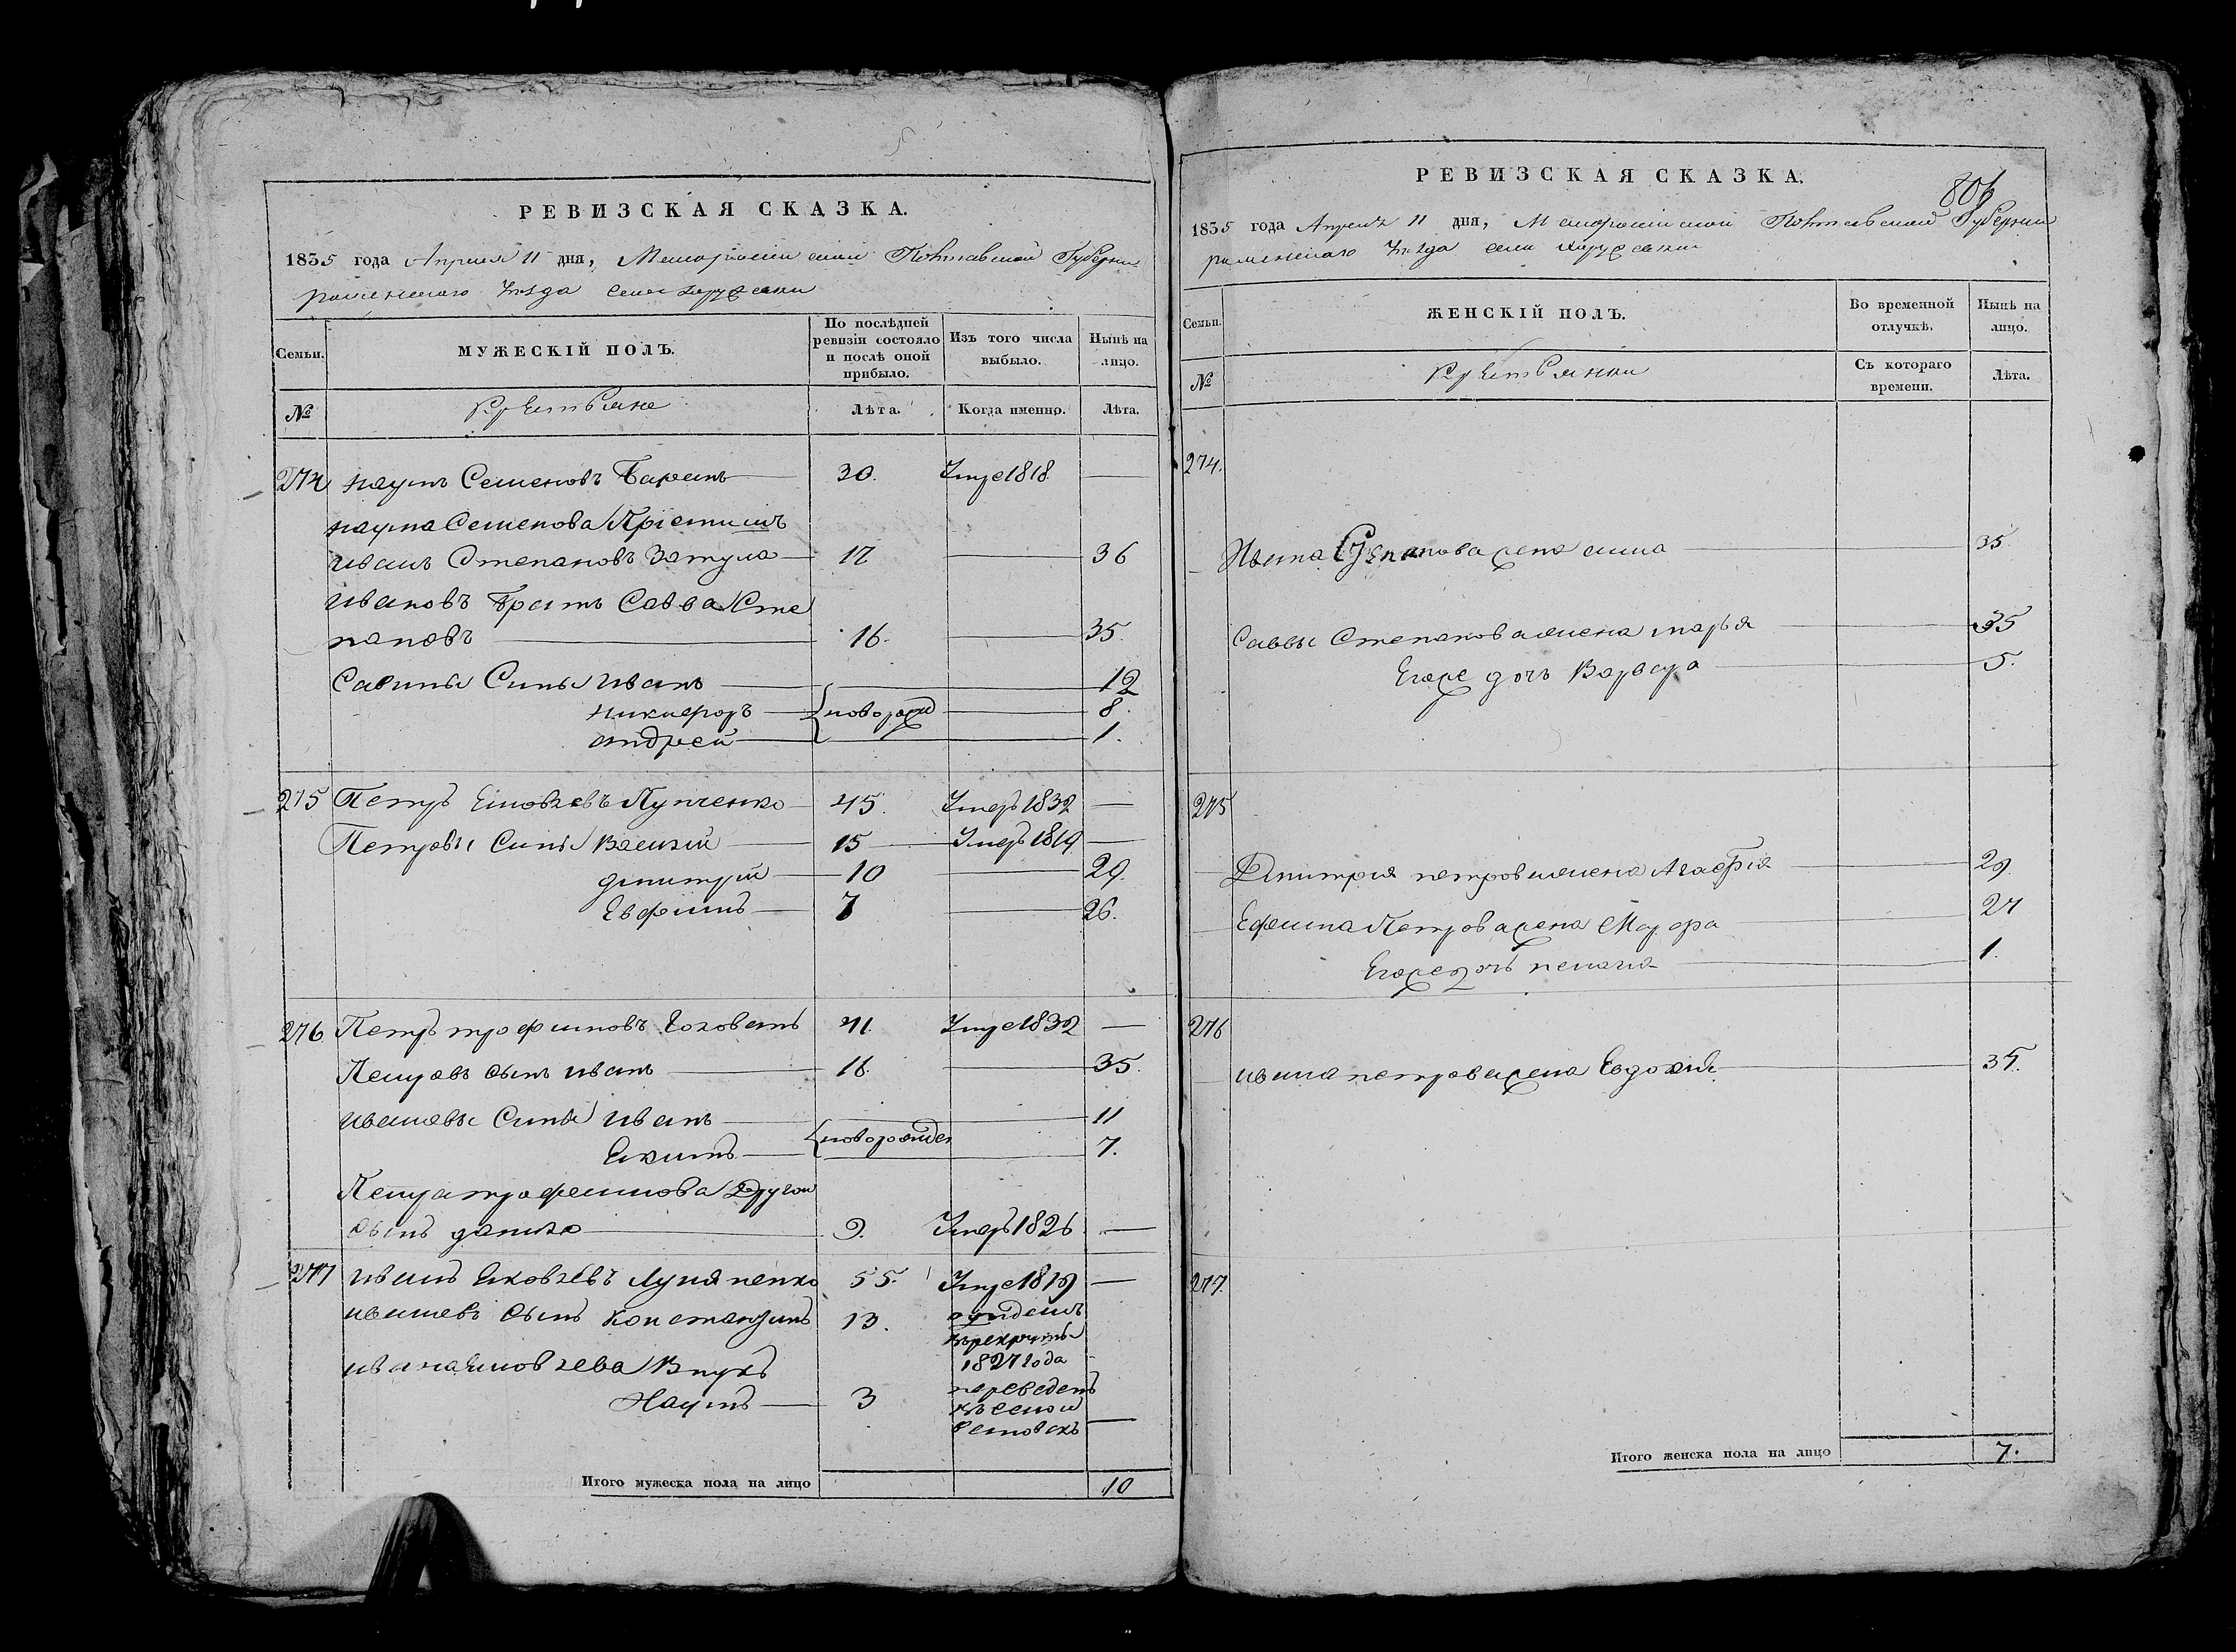 РЕВИЗСКАЯ СКАЗКА.
1835 года Апреля 11 дня, Малоросийской Полтавской Губернии
роменского уезда села
Семьи.
МУЖЕСКІЙ ПОЛЪ.
По послѣдней ревизіи состояло и послѣ оной прибыло.
Изъ того числа выбыло.
Нынѣ на лицо.
№
Крестьяне
Лѣта.
Когда именно.
Лѣта.
274 Наумъ Семеновъ 30. Умре 1818
Наума Семенова
иванъ Степановъ Затула 17 36
ивановъ братъ Савва Сте
пановъ 16. 35.
Савины Сины иванъ 12
никифоръ новорожд 8.
андрей 1.
275 Петръ Яковлевъ 45. Умеръ 1832
Петровы Сины Василій 15 Умеръ 1819
димитрій 10 29.
Евфимъ 7 26.
276 Петръ трофимовъ 41. Умре 1832
Петровъ сынъ иванъ 16. 35.
ивановы Сины иванъ 11
Екимъ новорожден 7.
Петра трофимова Другой
сынъ данило 9. Умеръ 1826
277 иванъ Яковлевъ 55. Умре 1819
ивановъ сынъ Константинъ 13. отданъ
въ рекруты
1827 года
ивана Яковлева Внукъ
Наумъ 3 переведенъ
Итого мужеска пола на лицо 10
РЕВИЗСКАЯ СКАЗКА.
806
1835 года Апреля 11 дня, Малоросийской Полтавской Губернии
роменского уезда села
Семьи.
ЖЕНСКІЙ ПОЛЪ.
Во временной отлучкѣ.
Нынѣ на лицо.
№
Крестьянки
Съ котораго времени.
Лѣта.
274.
Ивана Степанова жена анна 35.
Саввы Степанова жена марья 35
Егоже дочь Варвара 5.
275
Димитрия петрова жена Агафія 29.
Ефима Петрова жена 27
Егоже дочь пелагія 1.
276
ивана петрова жена Евдокия 34.
277.
Итого женска пола на лицо 7.